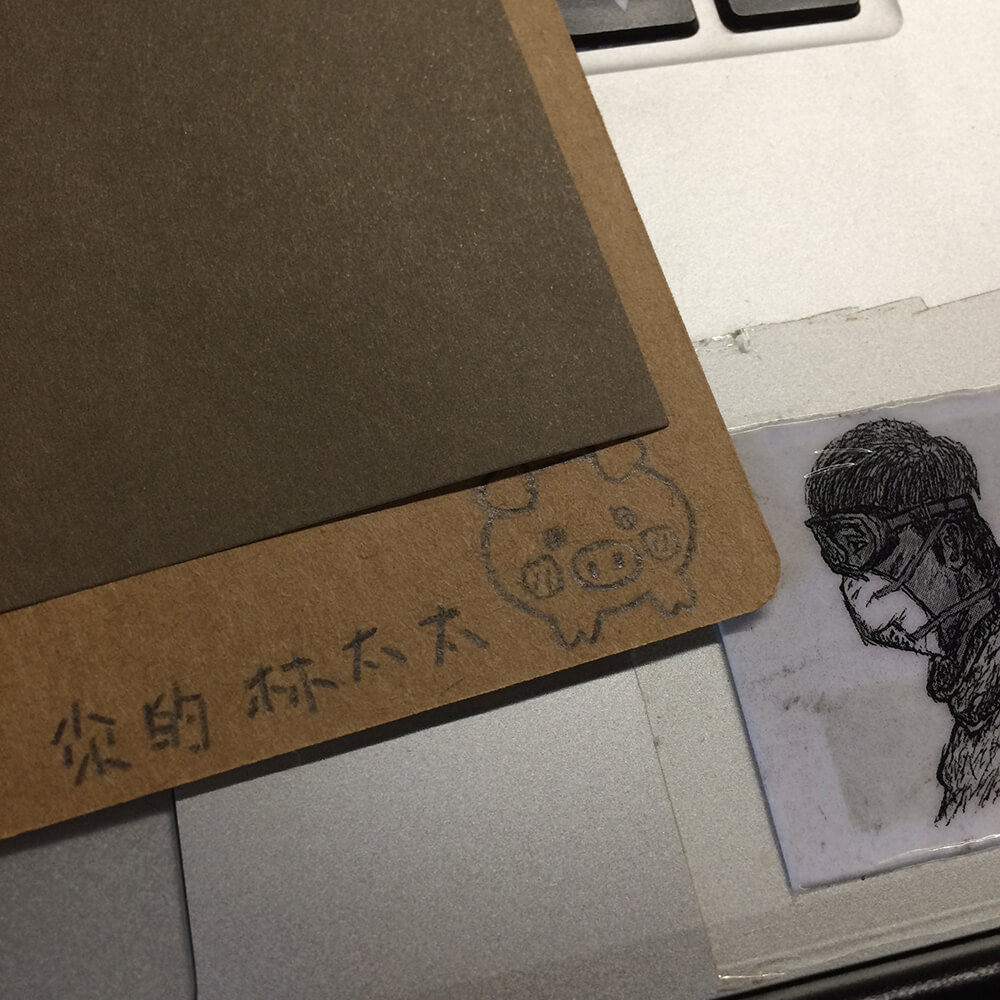 你的林太太